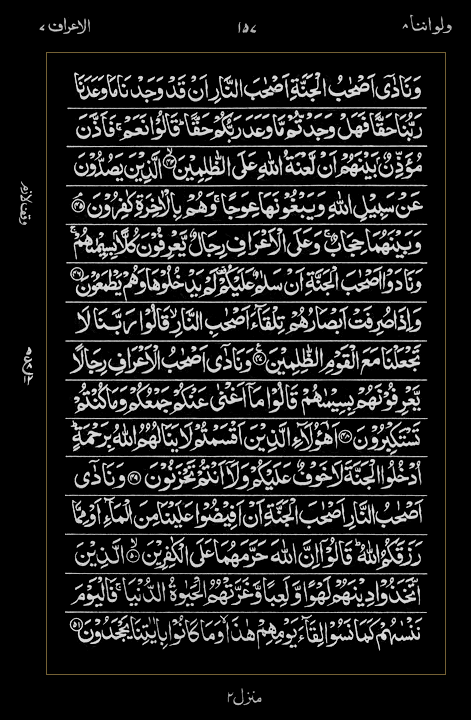 ولواننا ٨ ١٥٧ الاعراف ٧
وَنَادٰۤى اَصْحٰبُ الْجَنَّةِ اَصْحٰبَ النَّارِ اَنْ قَدْ وَجَدْنَا مَا وَعَدَنَا
رَبُّنَا حَقًّا فَهَلْ وَجَدْتُّمْ مَّا وَعَدَ رَبُّكُمْ حَقًّا ؕ قَالُوْا نَعَمْ ۚ فَاَذَّنَ
مُؤَذِّنٌۢ بَيْنَهُمْ اَنْ لَّعْنَةُ اللّٰهِ عَلَى الظّٰلِمِيْنَ ۙ﴿۴۴﴾ الَّذِيْنَ يَصُدُّوْنَ
عَنْ سَبِيْلِ اللّٰهِ وَيَبْغُوْنَهَا عِوَجًا ۚ وَهُمْ بِالْاٰخِرَةِ كٰفِرُوْنَ ۘ﴿۴۵﴾
وَبَيْنَهُمَا حِجَابٌ ۚ وَعَلَى الْاَعْرَافِ رِجَالٌ يَّعْرِفُوْنَ كُلًّۢا بِسِيْمٰىهُمْ ۚ
وَنَادَوْا اَصْحٰبَ الْجَنَّةِ اَنْ سَلٰمٌ عَلَيْكُمْ ۟ لَمْ يَدْخُلُوْهَا وَهُمْ يَطْمَعُوْنَ ﴿۴۶﴾
وَاِذَا صُرِفَتْ اَبْصَارُهُمْ تِلْقَآءَ اَصْحٰبِ النَّارِ ۙ قَالُوْا رَبَّنَا لَا
تَجْعَلْنَا مَعَ الْقَوْمِ الظّٰلِمِيْنَ ﴿۴۷﴾ وَنَادٰۤى اَصْحٰبُ الْاَعْرَافِ رِجَالًا
يَّعْرِفُوْنَهُمْ بِسِيْمٰىهُمْ قَالُوْا مَاۤ اَغْنٰى عَنْكُمْ جَمْعُكُمْ وَمَا كُنْتُمْ
تَسْتَكْبِرُوْنَ ﴿۴۸﴾ اَهٰۤؤُلَآءِ الَّذِيْنَ اَقْسَمْتُمْ لَا يَنَالُهُمُ اللّٰهُ بِرَحْمَةٍ ؕ
اُدْخُلُوا الْجَنَّةَ لَا خَوْفٌ عَلَيْكُمْ وَلَاۤ اَنْتُمْ تَحْزَنُوْنَ ﴿۴۹﴾ وَنَادٰۤى
اَصْحٰبُ النَّارِ اَصْحٰبَ الْجَنَّةِ اَنْ اَفِيْضُوْا عَلَيْنَا مِنَ الْمَآءِ اَوْ مِمَّا
رَزَقَكُمُ اللّٰهُ ؕ قَالُوْۤا اِنَّ اللّٰهَ حَرَّمَهُمَا عَلَى الْكٰفِرِيْنَ ۙ﴿۵۰﴾ الَّذِيْنَ
اتَّخَذُوْا دِيْنَهُمْ لَهْوًا وَّلَعِبًا وَّغَرَّتْهُمُ الْحَيٰوةُ الدُّنْيَا ۚ فَالْيَوْمَ
نَنْسٰىهُمْ كَمَا نَسُوْا لِقَآءَ يَوْمِهِمْ هٰذَا ۙ وَمَا كَانُوْا بِاٰيٰتِنَا يَجْحَدُوْنَ ﴿۵۱﴾
وقف لازم
منزل ٢